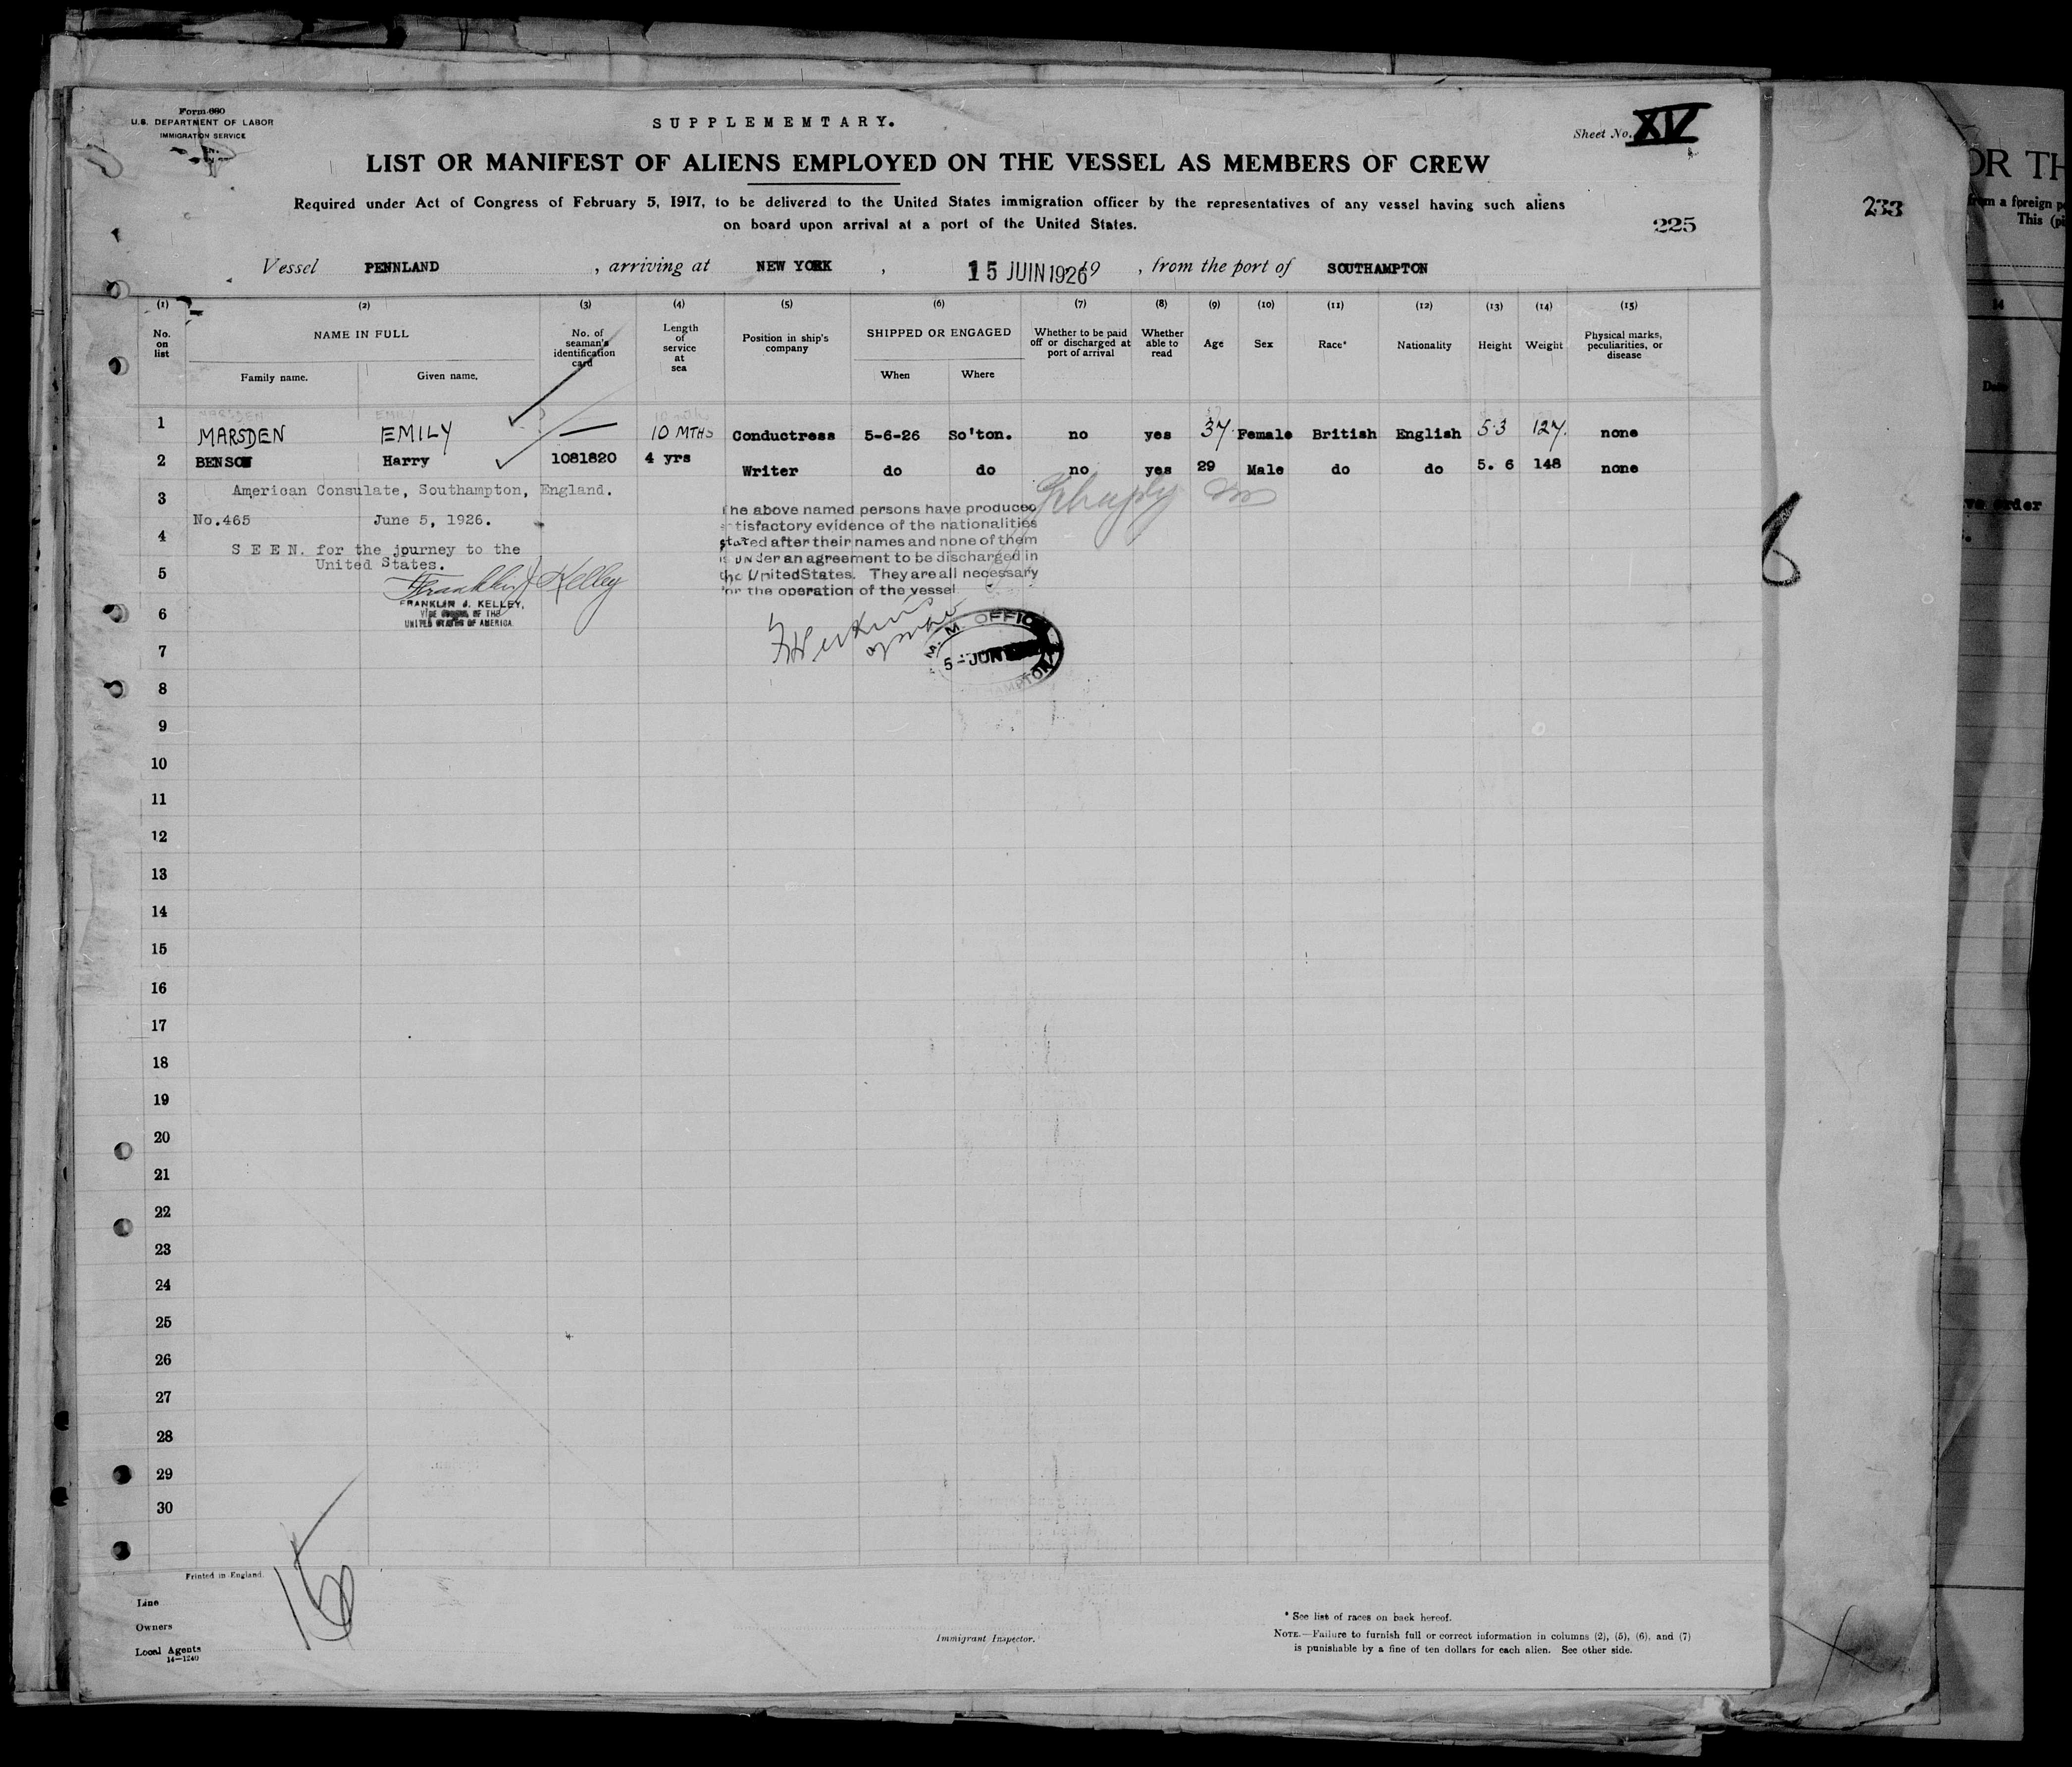 Form 680
U.S. DEPARTMENT OF LABOR
IMMIGRATION SERVICE
SUPPLEMEMTARY.
Sheet No. XIV
LIST OR MANIFEST OF ALIENS EMPLOYED ON THE VESSEL AS MEMBERS OF CREW
Required under Act of Congress of February 5, 1917, to be delivered to the United States immigration officer by the representatives of any vessel having such aliens
on board upon arrival at a port of the United States.
225
233
Vessel PENNLAND , arriving at NEW YORK , 15 JUIN 1926 19 , from the port of SOUTHAMPTON
(1) (2) (3) (4) (5) (6) (7) (8) (9) (10) (11) (12) (13) (14) (15)
No. on list NAME IN FULL Family name. Given name. No. of seaman's identification card Length of service at sea Position in ship's company SHIPPED OR ENGAGED When Where Whether to be paid off or discharged at port of arrival Whether able to read Age Sex Race* Nationality Height Weight Physical marks, peculiarities, or disease
1 MARSDEN EMILY — 10 MTHS Conductress 5-6-26 So'ton. no yes 37 Female British English 5.3 127. none
2 BENSON Harry 1081820 4 yrs Writer do do no yes 29 Male do do 5. 6 148 none
3
American Consulate, Southampton, England.
No.465 June 5, 1926.
4
S E E N. for the journey to the
United States.
5
Franklin J Kelley
FRANKLIN J. KELLEY,
VICE CONSUL OF THE
UNITED STATES OF AMERICA.
he above named persons have produced
tisfactory evidence of the nationalities
stated after their names and none of them
is under an agreement to be discharged in
the United States. They are all necessary
for the operation of the vessel
M. M. OFFICE
5-JUN
HAMPTON
6
7
8
9
10
11
12
13
14
15
16
17
18
19
20
21
22
23
24
25
26
27
28
29
30
Printed in England.
Line
Owners
Local Agents
14—1240
Immigrant Inspector.
* See list of races on back hereof.
NOTE.—Failure to furnish full or correct information in columns (2), (5), (6), and (7)
is punishable by a fine of ten dollars for each alien. See other side.
OR TH
from a foreign po
This (pi
14
Date
order